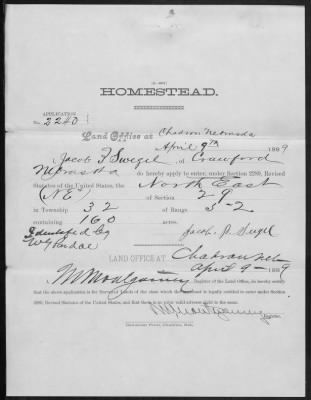 HOMESTEAD.
APPLICATION
No. 2240
Land Office at Chadron Nebraska
April 9th 1889
I, Jacob F. Swegel, of Crawford
Nebraska do hereby apply to enter, under Section 2289, Revised
Statutes of the United States, the North East
(NE) of Section 29
in Township 32 of Range 52
containing 160 acres.
Identified by
LAND OFFICE AT Chadron Neb
April 9 1889
I, M Montgomery, Register of the Land Office, do hereby certify
that the above application is for Surveyed Lands of the class which the applicant is legally entitled to enter under Section
2289, Revised Statutes of the United States, and that there is no prior valid adverse right to the same.
M Montgomery
Register.